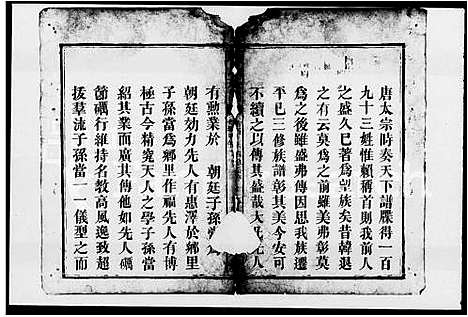 唐太宗時奏天下譜牒得一百
九十三姓惟賴稱首則我前人
之盛久已著為望族矣昔韓退
之有云莫為之前雖美弗彰莫
為之後雖盛弗傳因思我族遷
平已三修族譜彰其美今安可
不續之以傳其盛哉大
先人
有勲業於 朝廷子孫
朝廷効力先人有惠澤於鄉里
子孫當為鄉里作福先人有博
極古今精究天人之學子孫當
紹其業而廣其傳他如先人礪
節礪行維持名教高風逸致超
拔羣流子孫當一一儀型之而